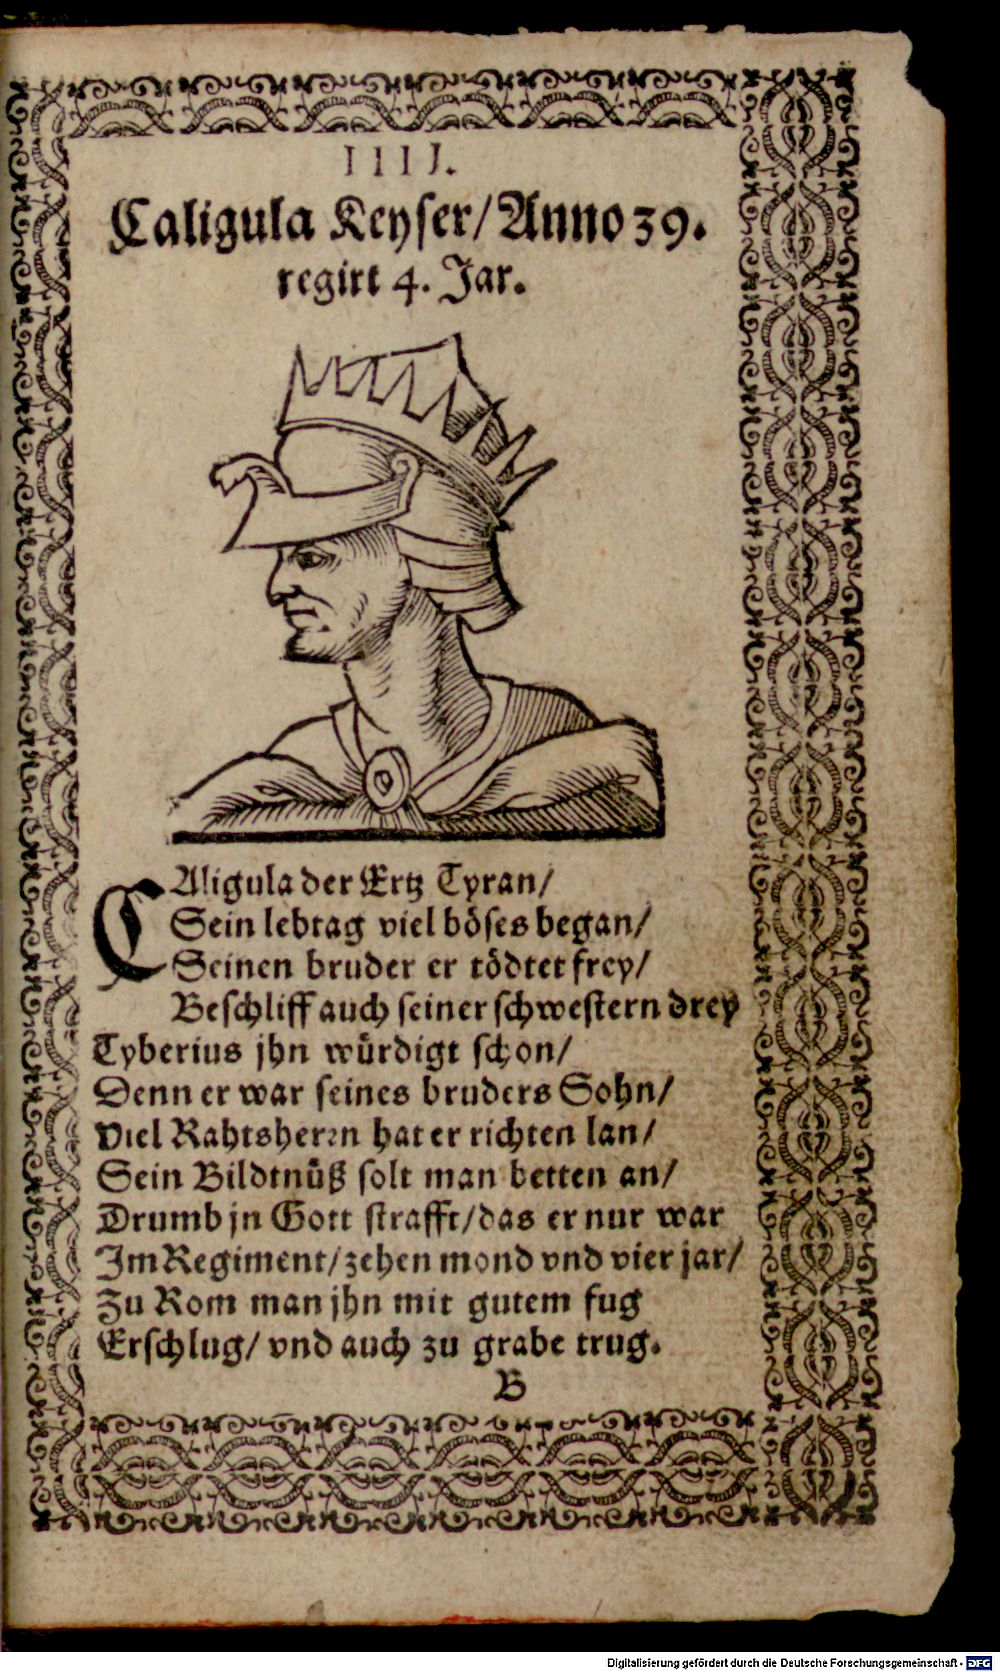 IIII.
Caligula Keyser/ Anno 39.
regirt 4. Jar.
CAligula der Ertz Tyran/
Sein lebtag viel böses began/
Seinen bruder er tödtet frey/
Beschliff auch seiner schwestern drey
Tyberius jhn würdigt schon/
Denn er war seines bruders Sohn/
Viel Rahtsherrn hat er richten lan/
Sein Bildtnüß solt man betten an/
Drumb jn Gott strafft/ das er nur war
Im Regiment/ zehen mond vnd vier jar/
Zu Rom man jhn mit gutem fug
Erschlug/ vnd auch zu grabe trug.
B
Digitalisierung gefördert durch die Deutsche Forschungsgemeinschaft - DFG